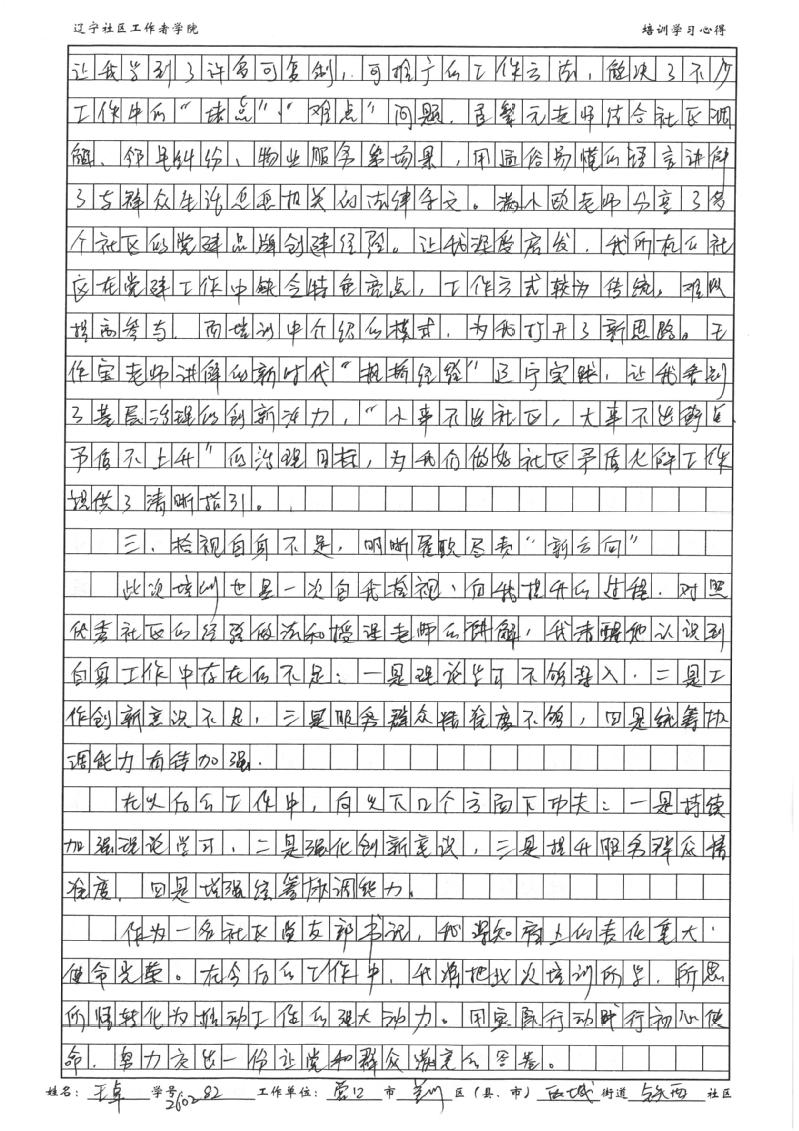 辽宁社区工作者学院 培训学习心得
让我学到了许多可复制、可推广的工作方法，解决了不少
工作中的“堵点”、“难点”问题。孟繁元老师结合社区调
解、邻里纠纷、物业服务等场景，用通俗易懂的语言讲解
了与群众生活息息相关的法律条文。满小欧老师分享了多
个社区的党建品牌创建经验。让我深受启发，我所在的社
区在党建工作中缺乏特色亮点，工作方式较为传统，难以
提高参与，而培训中介绍的模式，为我打开了新思路。王
作宝老师讲解的新时代“枫桥经验”辽宁实践，让我看到
了基层治理的创新活力，“小事不出社区，大事不出街道
矛盾不上升”的治理目标，为我们做好社区矛盾化解工作
提供了清晰指引。
三、检视自身不足，明晰履职尽责“新方向”
此次培训也是一次自我检视、自我提升的过程。对照
优秀社区的经验做法和授课老师的讲解，我清醒地认识到
自身工作中存在的不足：一是理论学习不够深入，二是工
作创新意识不足，三是服务群众精准度不够，四是统筹协
调能力有待加强。
在以后的工作中，向以下几个方面下功夫：一是持续
加强理论学习，二是强化创新意识，三是提升服务群众精
准度，四是增强统筹协调能力。
作为一名社区党支部书记，我深知肩上的责任重大，
使命光荣。在今后的工作中，我将把此次培训所学、所思
所悟转化为推动工作的强大动力。用实际行动践行初心使
命，努力交出一份让党和群众满意的答卷。
姓名：王卓 学号260282 工作单位：营口市 区（县、市）西城街道 社区